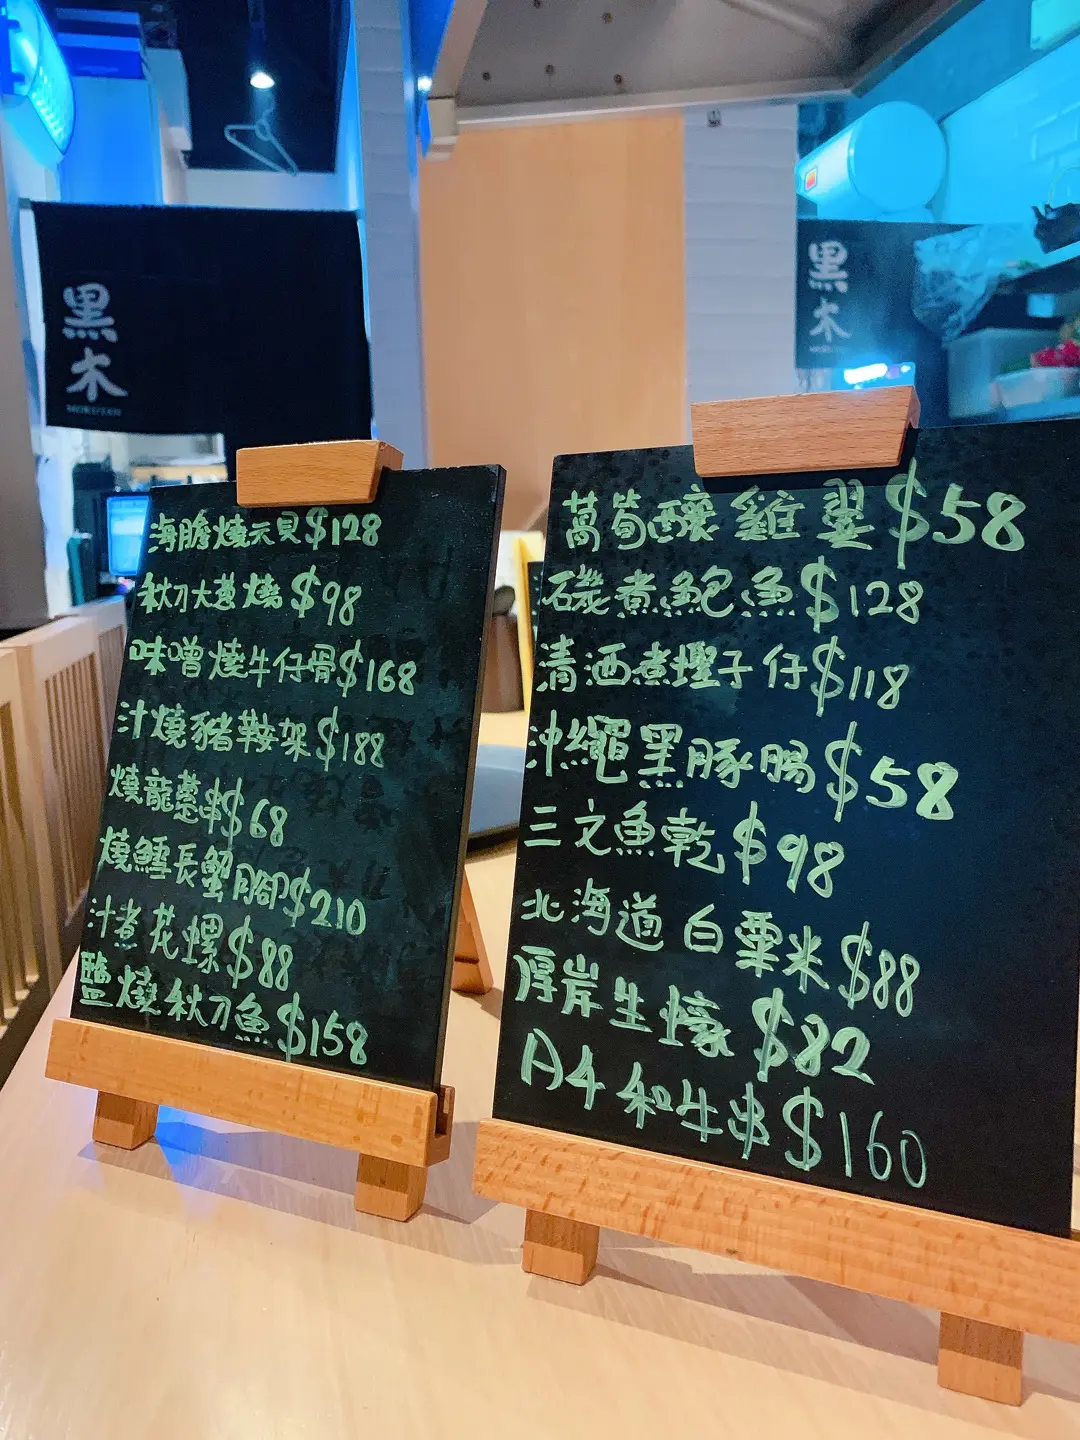 黑木
黑木
海膽燒元貝$128
秋刀大蔥燒$98
味噌燒牛仔骨$168
汁燒豬鞍架$188
燒龍蔥串$68
燒鱈長蟹腳$210
汁煮花螺$88
鹽燒秋刀魚$158
萵筍釀雞翼$58
磯煮鮑魚$128
清酒煮蟶子仔$118
沖繩黑豚腸$58
三文魚乾$98
北海道白粟米$88
厚岸生蠔$82
A4和牛串$160